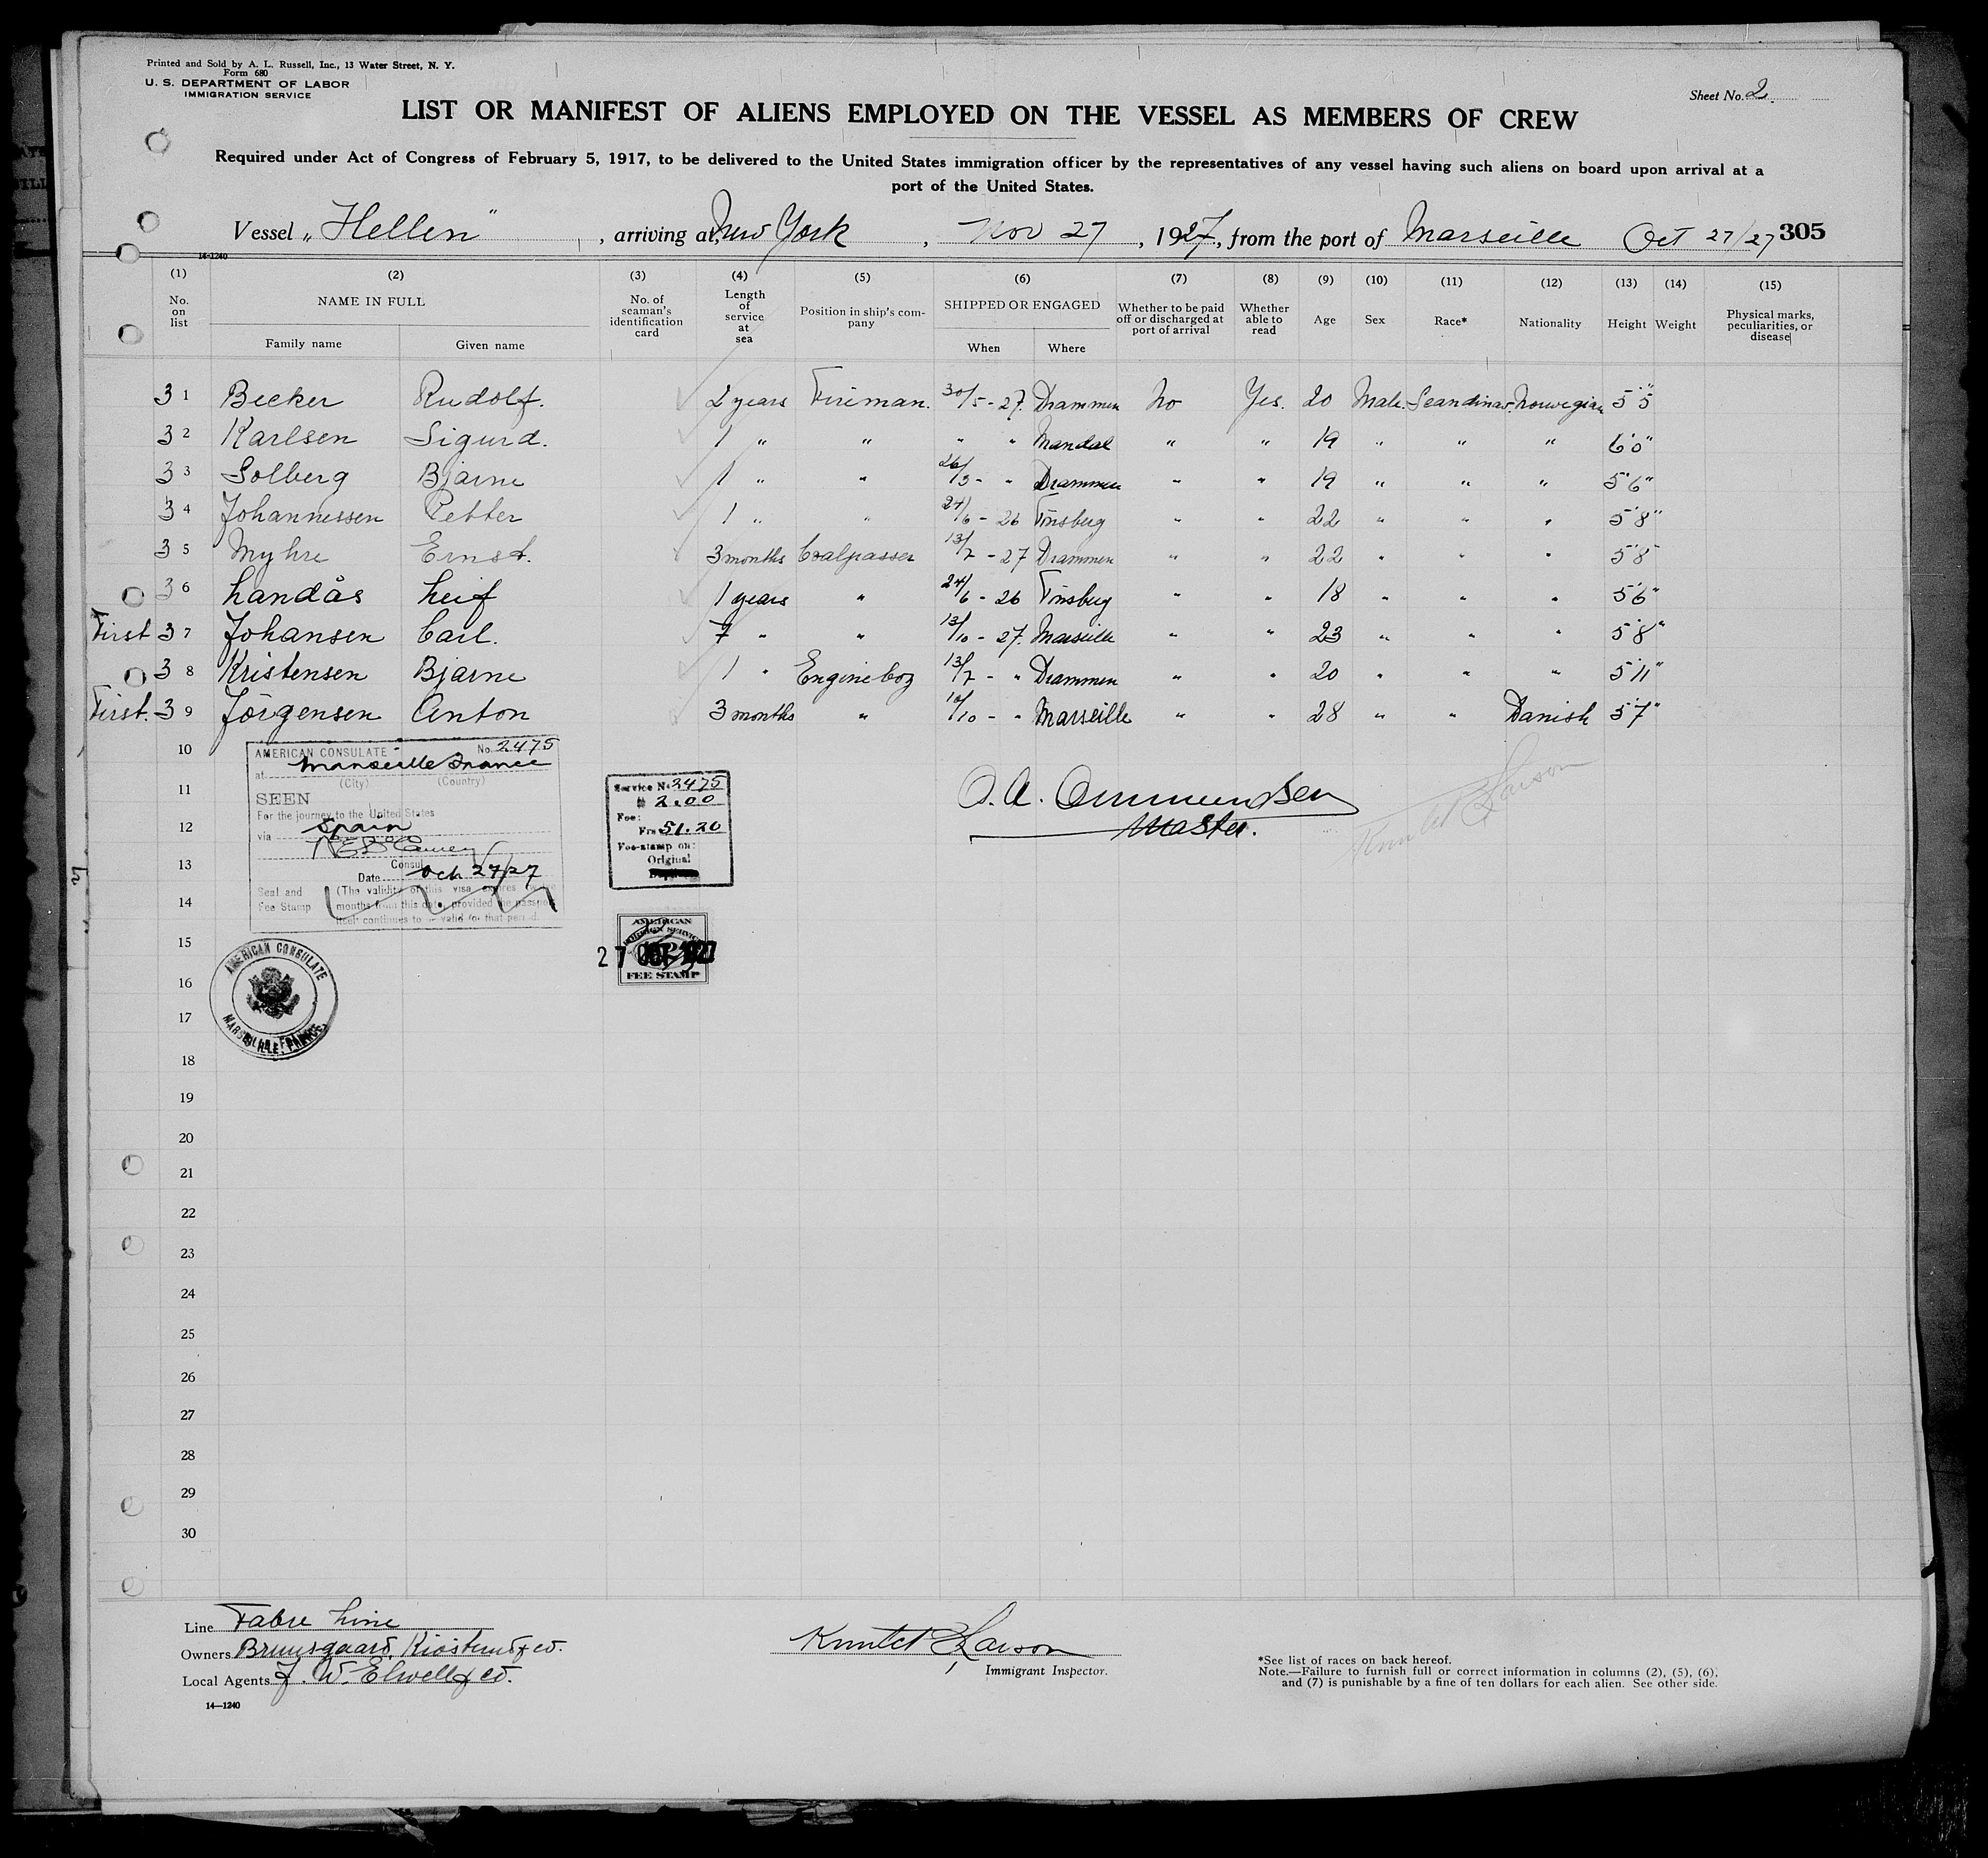 Printed and Sold by A. L. Russell, Inc., 13 Water Street, N. Y.
Form 680
U. S. DEPARTMENT OF LABOR
IMMIGRATION SERVICE
Sheet No. 2.
LIST OR MANIFEST OF ALIENS EMPLOYED ON THE VESSEL AS MEMBERS OF CREW
Required under Act of Congress of February 5, 1917, to be delivered to the United States immigration officer by the representatives of any vessel having such aliens on board upon arrival at a
port of the United States.
Vessel „Hellen", arriving at New York, Nov 27, 1927, from the port of Marseille Oct 27/27 305
14-1240
(1) (2) (3) (4) (5) (6) (7) (8) (9) (10) (11) (12) (13) (14) (15)
No. on list NAME IN FULL Family name Given name No. of seaman's identification card Length of service at sea Position in ship's company SHIPPED OR ENGAGED When Where Whether to be paid off or discharged at port of arrival Whether able to read Age Sex Race* Nationality Height Weight Physical marks, peculiarities, or disease
3 1 Becker Rudolf. 2 years Fireman. 30/5 - 27. Drammen No Yes. 20 Male. Scandinav. Norwegian 5'5"
3 2 Karlsen Sigurd. 1 " " " " Mandal " " 19 " " " 6'0"
3 3 Solberg Bjarne 1 " " 26/3 - " Drammen " " 19 " " " 5'6"
3 4 Johannessen Petter 1 " " 24/6 - 26 Tønsberg " " 22 " " " 5'8"
3 5 Myhre Ernst. 3 months Coalpasser 13/7 - 27 Drammen " " 22 " " " 5'8"
3 6 Landås Leif 1 years " 24/6 - 26 Tønsberg " " 18 " " " 5'6"
First 3 7 Johansen Carl. 7 " " 13/10 - 27. Marseille " " 23 " " " 5'8"
3 8 Kristensen Bjarne 1 " Engineboy 13/7 - " Drammen " " 20 " " " 5'11"
First. 3 9 Jörgensen Anton 3 months " 10/10 - " Marseille " " 28 " " Danish 5'7"
10
AMERICAN CONSULATE No. 2475
at Marseille France
(City) (Country)
11
SEEN
For the journey to the United States
12
via Spain
13
Consul
Date Oct 27/27
Seal and Fee Stamp
(The validity of this visa expires
14
months from this date, provided the passport
itself continues to be valid for that period.
Service No 2475
$ 2.00
Fee:
Frs 51.20
Fee-stamp on:
Original
O. A. Ammundsen
Master.
Knutet Larson
15
AMERICAN
27 OCT 1927
FEE STAMP
AMERICAN CONSULATE
MARSEILLE, FRANCE.
16
17
18
19
20
21
22
23
24
25
26
27
28
29
30
Line Fabre Line
Owners Bruusgaard, Kiøsterud & Co.
Local Agents J. W. Elwell & Co.
14—1240
Knutet Larson
Immigrant Inspector.
*See list of races on back hereof.
Note.—Failure to furnish full or correct information in columns (2), (5), (6),
and (7) is punishable by a fine of ten dollars for each alien. See other side.